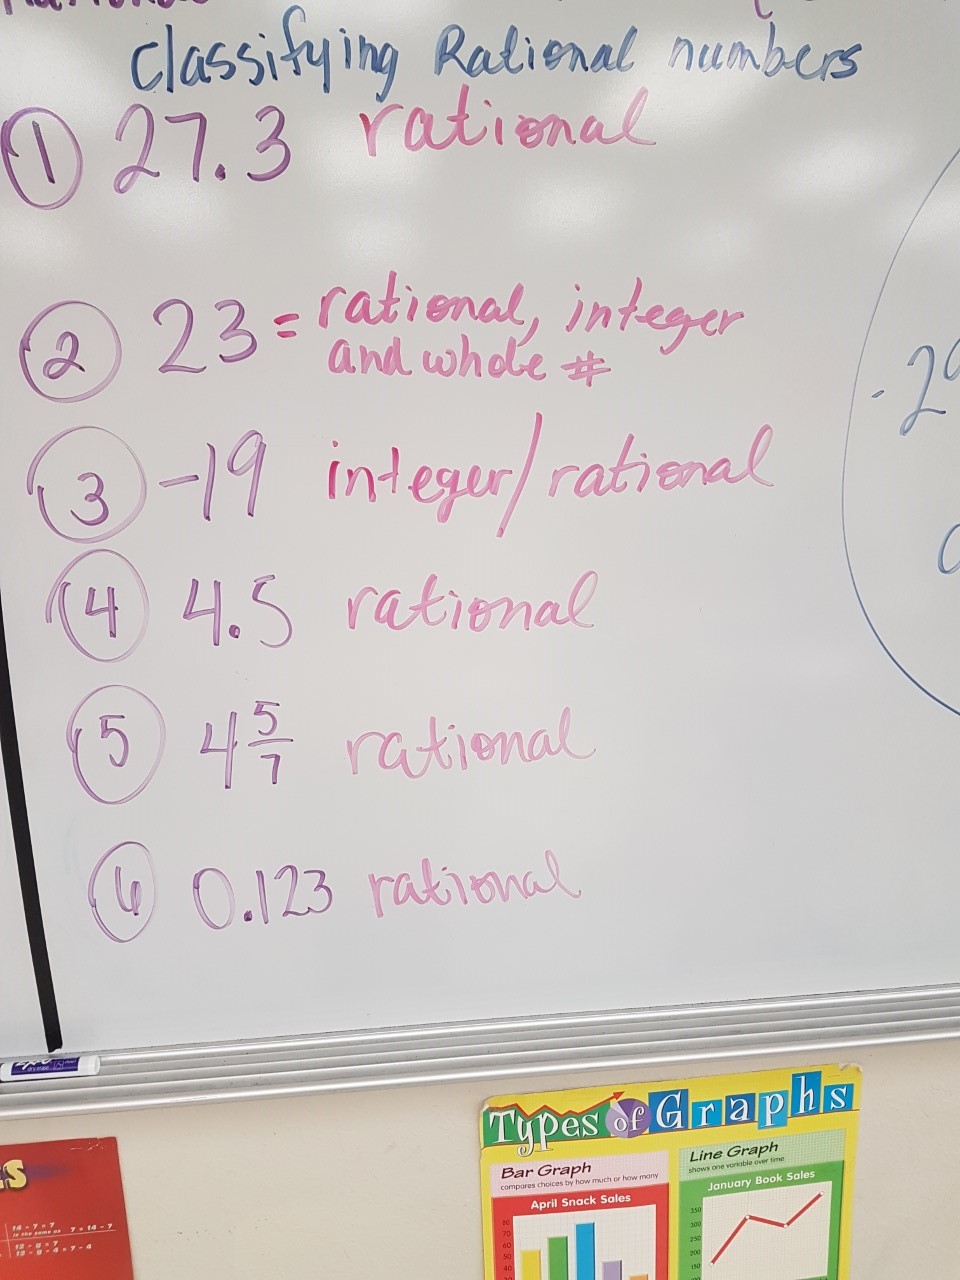 Classifying Rational numbers
1 27.3 rational
2 23 = rational, integer
and whole #
3 -19 integer/rational
4 4.5 rational
5 4 5/7 rational
6 0.123 rational
Types of Graphs
Bar Graph
compares choices by how much or how many
April Snack Sales
80
70
60
50
40
Line Graph
shows one variable over time
January Book Sales
350
300
250
200
150
14 - 7 = 7
is the same as 7 = 14 - 7